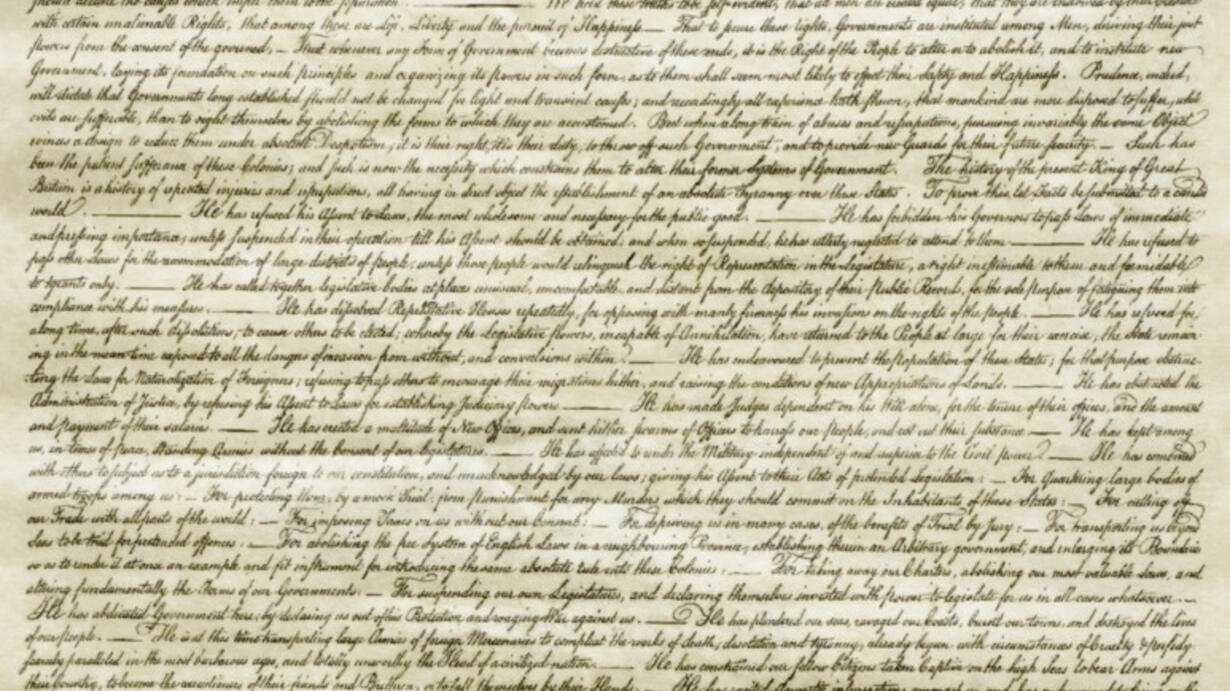 should declare the causes which impel them to the separation. We hold these truths to be self-evident, that all men are created equal, that they are endowed by their Creator
with certain unalienable Rights, that among these are Life, Liberty and the pursuit of Happiness. — That to secure these rights, Governments are instituted among Men, deriving their just
powers from the consent of the governed, — That whenever any Form of Government becomes destructive of these ends, it is the Right of the People to alter or to abolish it, and to institute new
Government, laying its foundation on such principles and organizing its powers in such form, as to them shall seem most likely to effect their Safety and Happiness. Prudence, indeed,
will dictate that Governments long established should not be changed for light and transient causes; and accordingly all experience hath shewn, that mankind are more disposed to suffer, while
evils are sufferable, than to right themselves by abolishing the forms to which they are accustomed. But when a long train of abuses and usurpations, pursuing invariably the same Object
evinces a design to reduce them under absolute Despotism, it is their right, it is their duty, to throw off such Government, and to provide new Guards for their future security. — Such has
been the patient sufferance of these Colonies; and such is now the necessity which constrains them to alter their former Systems of Government. The history of the present King of Great
Britain is a history of repeated injuries and usurpations, all having in direct object the establishment of an absolute Tyranny over these States. To prove this, let Facts be submitted to a candid
world. — He has refused his Assent to Laws, the most wholesome and necessary for the public good. — He has forbidden his Governors to pass Laws of immediate
and pressing importance, unless suspended in their operation till his Assent should be obtained; and when so suspended, he has utterly neglected to attend to them — He has refused to
pass other Laws for the accommodation of large districts of people, unless those people would relinquish the right of Representation in the Legislature, a right inestimable to them and formidable
to tyrants only. — He has called together legislative bodies at places unusual, uncomfortable, and distant from the depository of their Public Records, for the sole purpose of fatiguing them into
compliance with his measures. — He has dissolved Representative Houses repeatedly, for opposing with manly firmness his invasions on the rights of the people. — He has refused for
a long time, after such dissolutions, to cause others to be elected; whereby the Legislative powers, incapable of Annihilation, have returned to the People at large for their exercise; the State remain-
ing in the mean time exposed to all the dangers of invasion from without, and convulsions within. — He has endeavoured to prevent the Population of these States; for that purpose obstruc-
ting the Laws for Naturalization of Foreigners; refusing to pass others to encourage their migrations hither, and raising the conditions of new Appropriations of Lands. — He has obstructed the
Administration of Justice, by refusing his Assent to Laws for establishing Judiciary powers — He has made Judges dependent on his Will alone, for the tenure of their offices, and the amount
and payment of their salaries. — He has erected a multitude of New Offices, and sent hither swarms of Officers to harrass our people, and eat out their substance — He has kept among
us, in times of peace, Standing Armies without the Consent of our legislatures. — He has affected to render the Military independent of and superior to the Civil power. — He has combined
with others to subject us to a jurisdiction foreign to our constitution, and unacknowledged by our laws; giving his Assent to their Acts of pretended Legislation: — For Quartering large bodies of
armed troops among us: — For protecting them, by a mock Trial, from punishment for any Murders which they should commit on the Inhabitants of these States: — For cutting off
our Trade with all parts of the world: — For imposing Taxes on us without our Consent: — For depriving us in many cases, of the benefits of Trial by Jury: — For transporting us beyond
Seas to be tried for pretended offences: — For abolishing the free System of English Laws in a neighbouring Province, establishing therein an Arbitrary government, and enlarging its Boundaries
so as to render it at once an example and fit instrument for introducing the same absolute rule into these Colonies: — For taking away our Charters, abolishing our most valuable Laws, and
altering fundamentally the Forms of our Governments: — For suspending our own Legislatures, and declaring themselves invested with power to legislate for us in all cases whatsoever. —
He has abdicated Government here, by declaring us out of his Protection and waging War against us. — He has plundered our seas, ravaged our Coasts, burnt our towns, and destroyed the lives
of our people. — He is at this time transporting large Armies of foreign Mercenaries to compleat the works of death, desolation and tyranny, already begun with circumstances of Cruelty & perfidy
scarcely paralleled in the most barbarous ages, and totally unworthy the Head of a civilized nation. — He has constrained our fellow Citizens taken Captive on the high Seas to bear Arms against
their Country, to become the executioners of their friends and Brethren, or to fall themselves by their Hands. — He has excited domestic insurrections amongst us